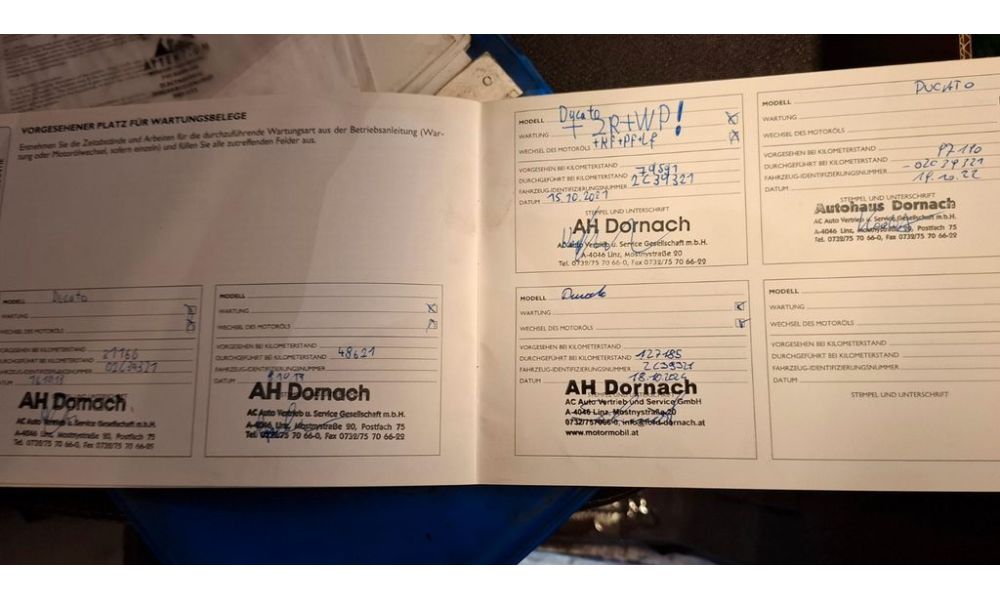 VORGESEHENER PLATZ FÜR WARTUNGSBELEGE
Entnehmen Sie die Zeitabstände und Arbeiten für die durchzuführende Wartungsart aus der Betriebsanleitung (War-
tung oder Motorölwechsel, sofern einzeln) und füllen Sie alle zutreffenden Felder aus.
MODELL Ducato
WARTUNG
WECHSEL DES MOTORÖLS
VORGESEHEN BEI KILOMETERSTAND
DURCHGEFÜHRT BEI KILOMETERSTAND 21166
FAHRZEUG-IDENTIFIZIERUNGSNUMMER 02C39321
DATUM
AH Dornach
AC Auto Vertrieb u. Service Gesellschaft m.b.H.
A-4046 Linz, Mostnystraße 20, Postfach 75
Tel. 0732/75 70 66-0, Fax 0732/75 70 66-22
MODELL
WARTUNG
WECHSEL DES MOTORÖLS
VORGESEHEN BEI KILOMETERSTAND
DURCHGEFÜHRT BEI KILOMETERSTAND 48621
FAHRZEUG-IDENTIFIZIERUNGSNUMMER
DATUM
AH Dornach
AC Auto Vertrieb u. Service Gesellschaft m.b.H.
A-4046 Linz, Mostnystraße 20, Postfach 75
Tel. 0732/75 70 66-0, Fax 0732/75 70 66-22
MODELL Ducato
+ ZR+WP!
WARTUNG
+RF+PF+LF
WECHSEL DES MOTORÖLS
VORGESEHEN BEI KILOMETERSTAND
DURCHGEFÜHRT BEI KILOMETERSTAND 79591
FAHRZEUG-IDENTIFIZIERUNGSNUMMER 2C39321
DATUM 15.10.2021
STEMPEL UND UNTERSCHRIFT
AH Dornach
AC Auto Vertrieb u. Service Gesellschaft m.b.H.
A-4046 Linz, Mostnystraße 20
Tel. 0732/75 70 66-0, Fax 0732/75 70 66-22
MODELL DUCATO
WARTUNG
WECHSEL DES MOTORÖLS
VORGESEHEN BEI KILOMETERSTAND
DURCHGEFÜHRT BEI KILOMETERSTAND 97110
FAHRZEUG-IDENTIFIZIERUNGSNUMMER -02C39321
DATUM 19.10.22
STEMPEL UND UNTERSCHRIFT
Autohaus Dornach
AC Auto Vertrieb u. Service Gesellschaft m.b.H.
A-4046 Linz, Mostnystraße 20, Postfach 75
Tel. 0732/75 70 66-0, Fax 0732/75 70 66-22
MODELL Ducato
WARTUNG
WECHSEL DES MOTORÖLS
VORGESEHEN BEI KILOMETERSTAND
DURCHGEFÜHRT BEI KILOMETERSTAND 127185
FAHRZEUG-IDENTIFIZIERUNGSNUMMER 2C39321
DATUM 18.10.2024
AH Dornach
AC Auto Vertrieb und Service GmbH
A-4046 Linz, Mostnystraße 20
0732/757066-0, info@ford-dornach.at
www.motormobil.at
MODELL
WARTUNG
WECHSEL DES MOTORÖLS
VORGESEHEN BEI KILOMETERSTAND
DURCHGEFÜHRT BEI KILOMETERSTAND
FAHRZEUG-IDENTIFIZIERUNGSNUMMER
DATUM
STEMPEL UND UNTERSCHRIFT